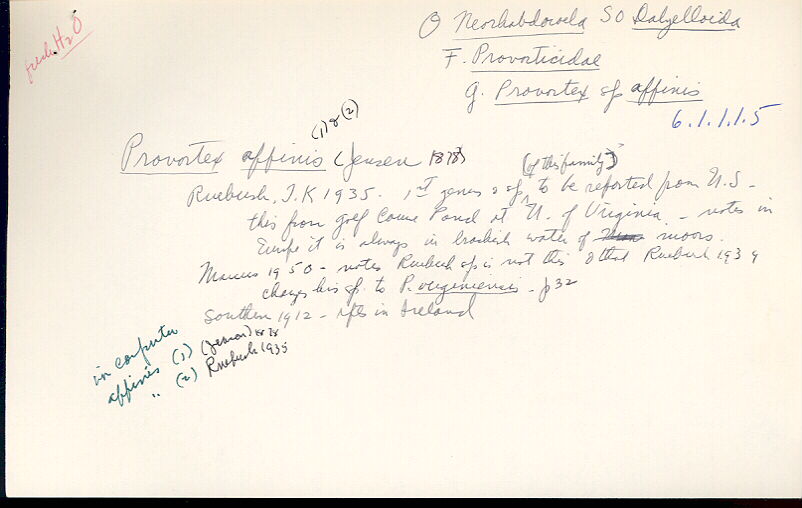 fresh H2O
O Neorhabdocoela SO Dalyelloida
F. Provorticidae
g. Provortex sp affinis
6.1.1.1.5
(1) & (2)
Provortex affinis (Jensen 1878)
(of this family)
Ruebush, T.K 1935. 1st genus & sp. to be reported from U.S -
this from golf course Pond at U. of Virginia. - notes in
Europe it is always in brackish water of moors.
Marcus 1950 - notes Ruebush sp is not this & that Ruebush 1939
changes his sp. to P. virginiensis - p32
Southern 1912 - rpts in Ireland
in computer
affinis (1) (Jensen) 1878
" (2) Ruebush 1935